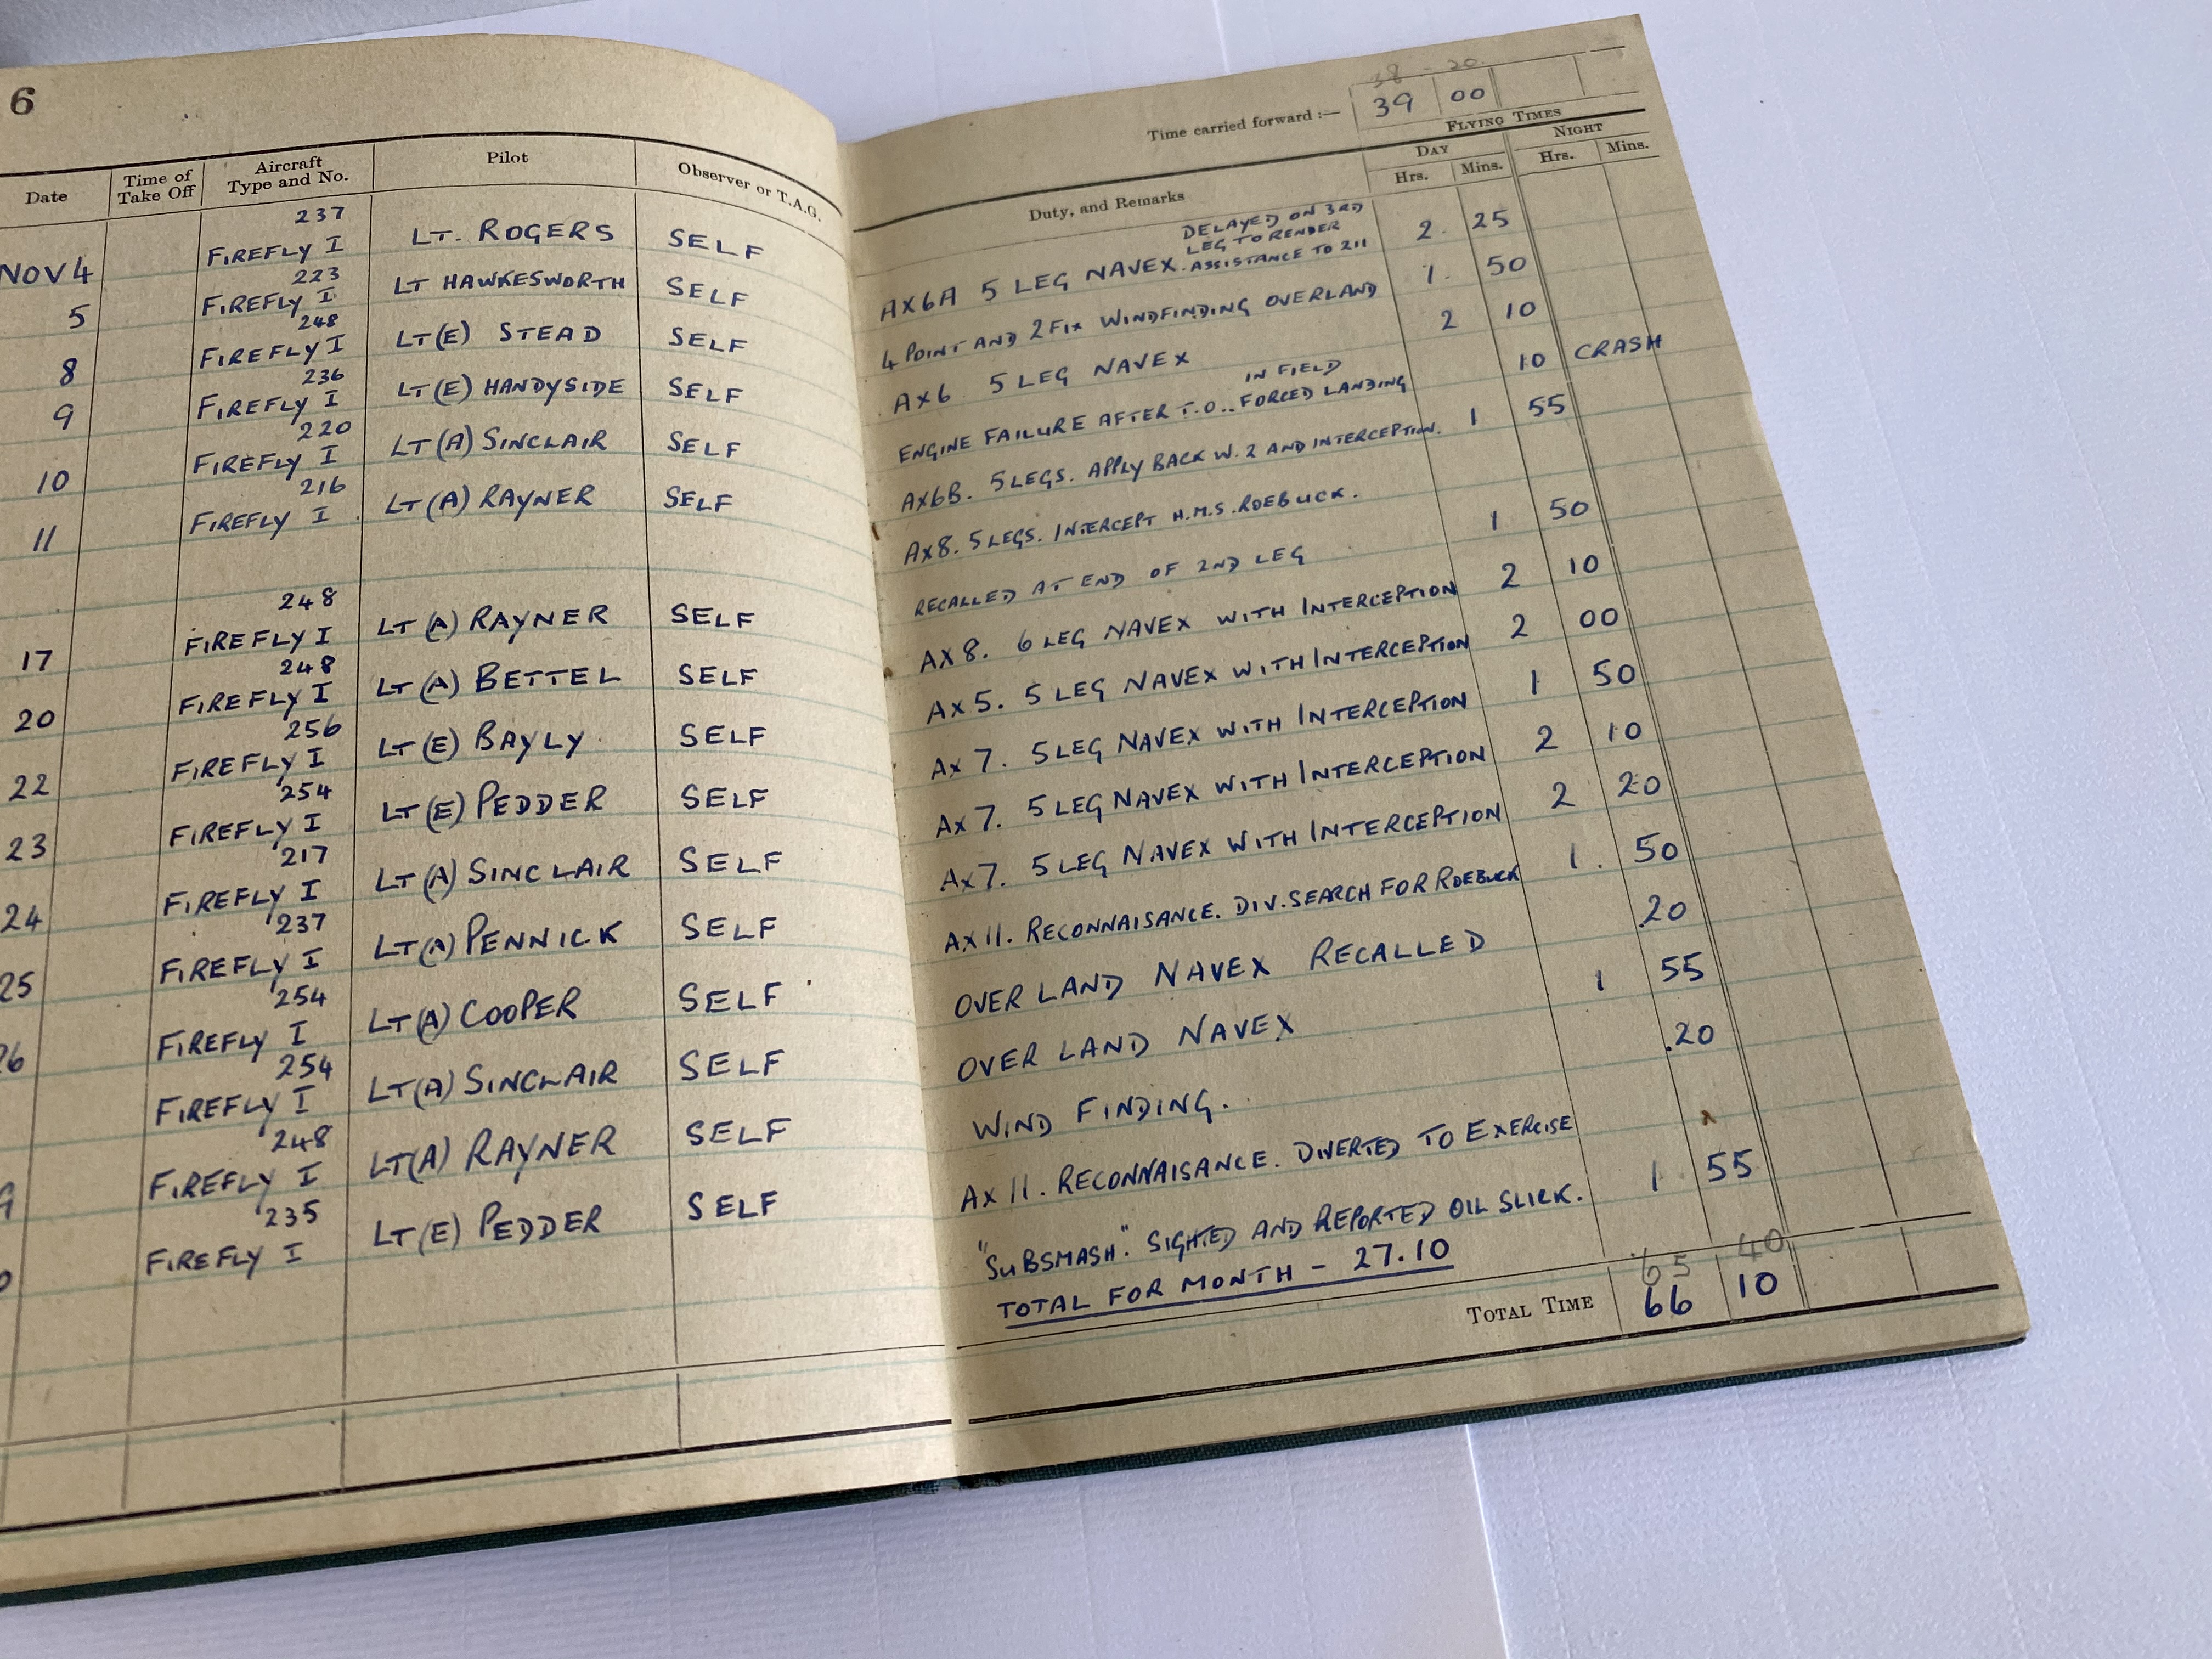 6
Date Time of Take Off Aircraft Type and No. Pilot Observer or T.A.G.
237
NOV 4 FIREFLY I LT. ROGERS SELF
223
5 FIREFLY I LT HAWKESWORTH SELF
248
8 FIREFLY I LT(E) STEAD SELF
236
9 FIREFLY I LT(E) HANDYSIDE SELF
220
10 FIREFLY I LT(A) SINCLAIR SELF
216
11 FIREFLY I LT(A) RAYNER SELF
248
17 FIREFLY I LT(A) RAYNER SELF
248
20 FIREFLY I LT(A) BETTEL SELF
256
22 FIREFLY I LT(E) BAYLY SELF
254
23 FIREFLY I LT(E) PEDDER SELF
217
24 FIREFLY I LT(A) SINCLAIR SELF
237
25 FIREFLY I LT(A) PENNICK SELF
254
26 FIREFLY I LT(A) COOPER SELF
254
FIREFLY I LT(A) SINCLAIR SELF
248
9 FIREFLY I LT(A) RAYNER SELF
235
0 FIREFLY I LT(E) PEDDER SELF
38 - 20
Time carried forward :— 39 00
FLYING TIMES
DAY NIGHT
Duty, and Remarks Hrs. Mins. Hrs. Mins.
DELAYED ON 3RD
LEG TO RENDER
AX6A 5 LEG NAVEX. ASSISTANCE TO 211 2. 25
4 POINT AND 2 FIX WINDFINDING OVERLAND 1. 50
AX6 5 LEG NAVEX 2 10
IN FIELD
ENGINE FAILURE AFTER T.O.. FORCED LANDING 10 CRASH
AX6B. 5 LEGS. APPLY BACK W.2 AND INTERCEPTION. 1 55
AX8. 5 LEGS. INTERCEPT H.M.S. ROEBUCK.
RECALLED AT END OF 2ND LEG 1 50
AX8. 6 LEG NAVEX WITH INTERCEPTION 2 10
AX5. 5 LEG NAVEX WITH INTERCEPTION 2 00
AX7. 5 LEG NAVEX WITH INTERCEPTION 1 50
AX7. 5 LEG NAVEX WITH INTERCEPTION 2 10
AX7. 5 LEG NAVEX WITH INTERCEPTION 2 20
AX11. RECONNAISANCE. DIV. SEARCH FOR ROEBUCK 1. 50
OVER LAND NAVEX RECALLED .20
OVER LAND NAVEX 1 55
WIND FINDING. .20
AX11. RECONNAISANCE. DIVERTED TO EXERCISE
"SUBSMASH". SIGHTED AND REPORTED OIL SLICK. 1 55
TOTAL FOR MONTH - 27.10
65 40
TOTAL TIME 66 10